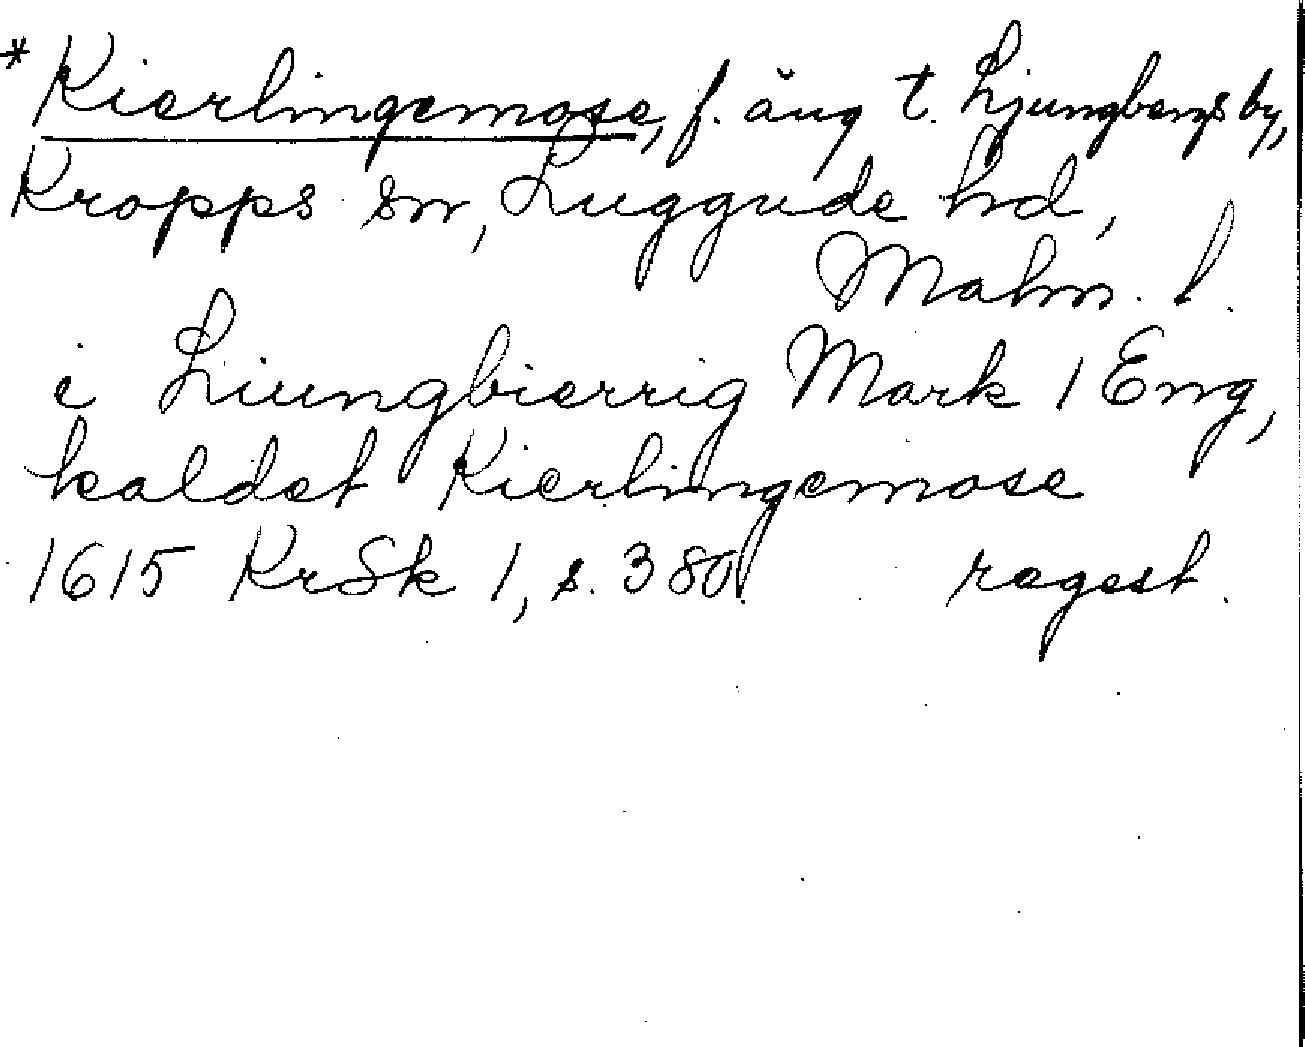 * Kierlingemose, f. äng t. Ljungbergs by,
Kropps sn, Luggude hd,
Malm. l.
i Liungbierrig Mark 1 Eng,
kaldet Kierlingemose
1615 KrSk 1, s. 380. regest.